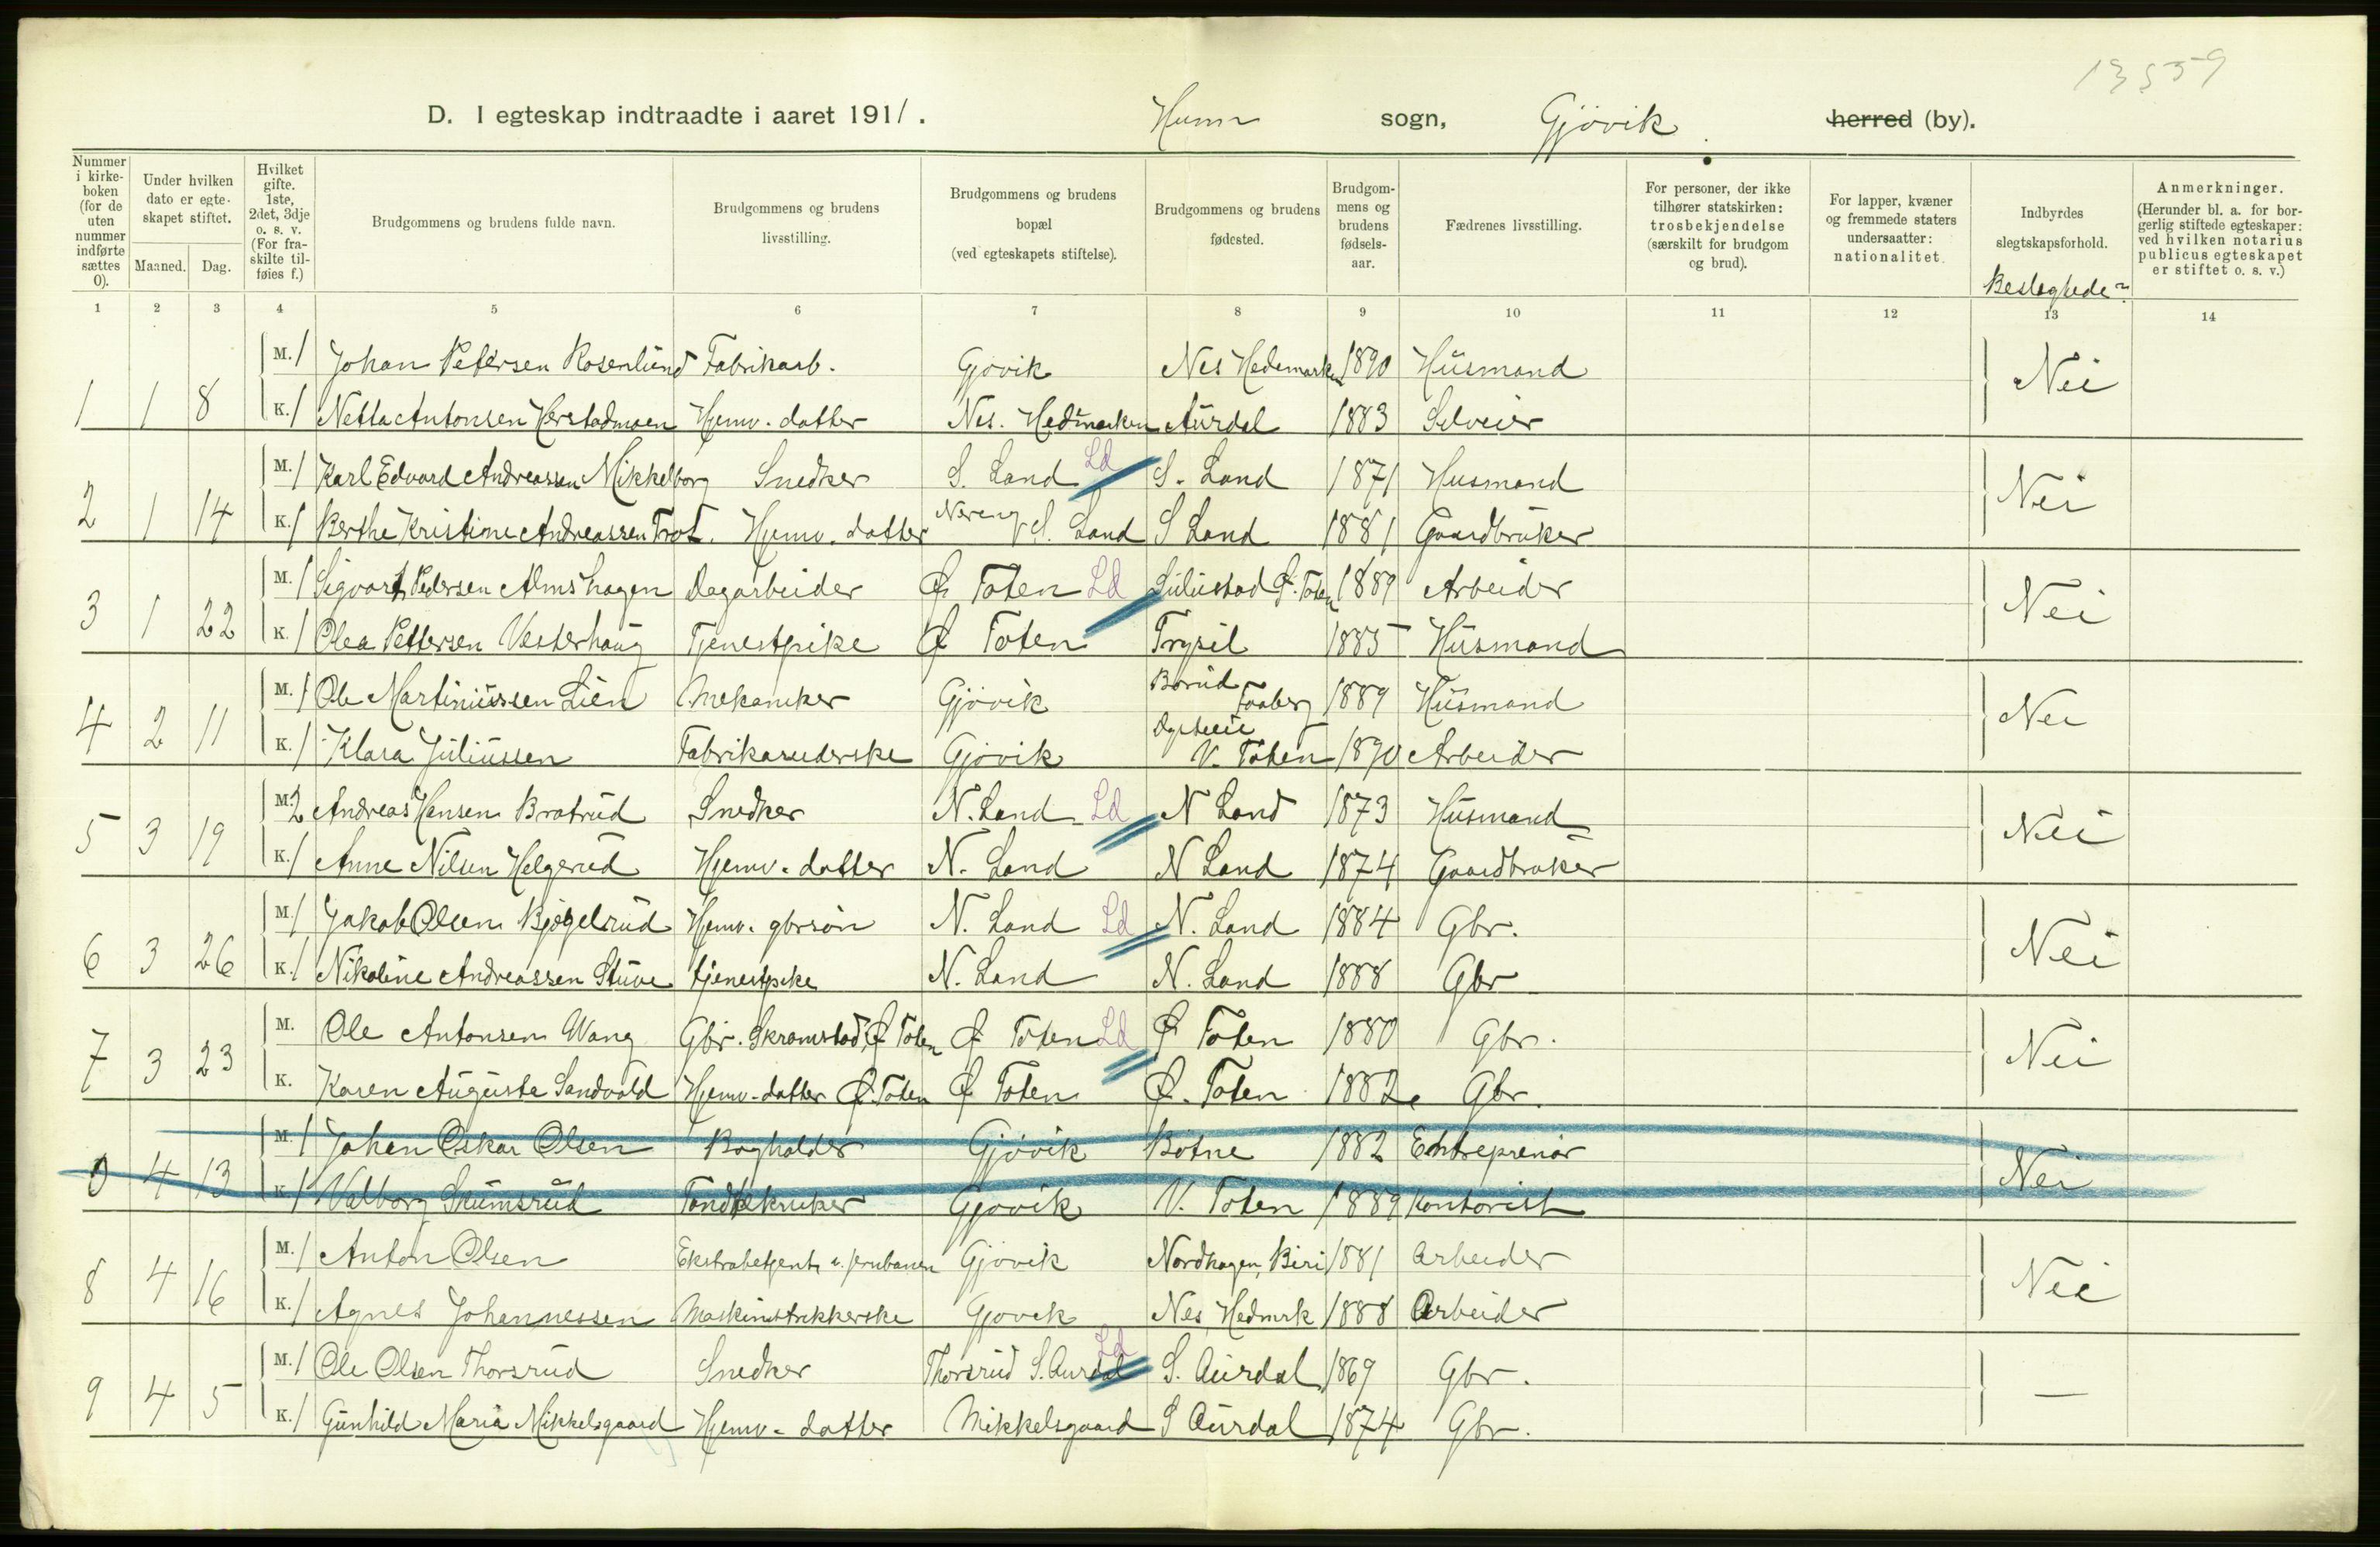 13559
D. I egteskap indtraadte i aaret 1911. Hunn sogn, Gjövik herred (by).
Nummer i kirkeboken (for de uten nummer indførte sættes 0). Under hvilken dato er egteskapet stiftet. Maaned. Dag. Hvilket gifte. 1ste, 2det, 3dje o. s. v. (For fraskilte tilføies f.) Brudgommens og brudens fulde navn. Brudgommens og brudens livsstilling. Brudgommens og brudens bopæl (ved egteskapets stiftelse). Brudgommens og brudens fødested. Brudgommens og brudens fødselsaar. Fædrenes livsstilling. For personer, der ikke tilhører statskirken: trosbekjendelse (særskilt for brudgom og brud). For lapper, kvæner og fremmede staters undersaatter: nationalitet. Indbyrdes slegtskapsforhold. Beslegtede? Anmerkninger. (Herunder bl. a. for borgerlig stiftede egteskaper: ved hvilken notarius publicus egteskapet er stiftet o. s. v.)
1 2 3 4 5 6 7 8 9 10 11 12 13 14
M. 1 Johan Petersen Rosenlund Fabrikarb. Gjövik Nes Hedemarken 1890 Husmand
1 1 8 K. 1 Netta Antonsen Herstadmoen Hjemv. datter Nes. Hedmarken Aurdal 1883 Selveier Nei
M. 1 Karl Edvard Andreassen Mikkelborg Snedker S. Land Ld S. Land 1871 Husmand
2 1 14 K. 1 Berthe Kristine Andreassen Hjemv. datter S. Land S Land 1881 Gaardbruker Nei
M. 1 Sigvart Pedersen Almshagen Dagarbeider Ø Toten Ld Ø. Toten 1889 Arbeider
3 1 22 K. 1 Olea Pettersen Vesterhaug Tjenestpike Ø Toten Trysil 1885 Husmand Nei
M. 1 Ole Martiniussen Lien Mekaniker Gjövik Borud Faaberg 1889 Husmand
4 2 11 K. 1 Klara Juliussen Fabrikarbeiderske Gjövik V. Toten 1890 Arbeider Nei
M. 2 Andreas Hansen Bratrud Snedker N. Land Ld N Land 1873 Husmand
5 3 19 K. 1 Anne Nilsen Helgerud Hjemv. datter N. Land N Land 1874 Gaardbruker Nei
M. 1 Jakob Olsen Bjøgelrud Hjemv. gbrsön N. Land Ld N. Land 1884 Gbr.
6 3 26 K. 1 Nikoline Andreassen Stuve tjenestpike N. Land N. Land 1888 Gbr Nei
M. Ole Antonsen Wang Gbr. Skramstad, Ø Toten Ø Toten Ld Ø Toten 1880 Gbr.
7 3 23 K. Karen Auguste Sandvold Hjemv. datter Ø. Toten Ø Toten Ø. Toten 1882 Gbr. Nei
M. 1 Johan Oskar Olsen Bogholder Gjövik Botne 1882 Entreprenör
0 4 13 K. 1 Valborg Skumsrud Gjövik V. Toten 1889 Kontorist Nei
M. 1 Anton Olsen Ekstrabetjent v. jernbanen Gjövik Nordhagen, Biri 1881 Arbeider
8 4 16 K. 1 Agnes Johannessen Maskinstrikkerske Gjövik Nes Hedmrk 1888 Arbeider Nei
M. 1 Ole Olsen Thorsrud Snedker Thorsrud S. Aurdal Ld S. Aurdal 1869 Gbr.
9 4 5 K. 1 Gunhild Maria Mikkelsgaard Hjemv. datter Mikkelsgaard S Aurdal 1874 Gbr. —